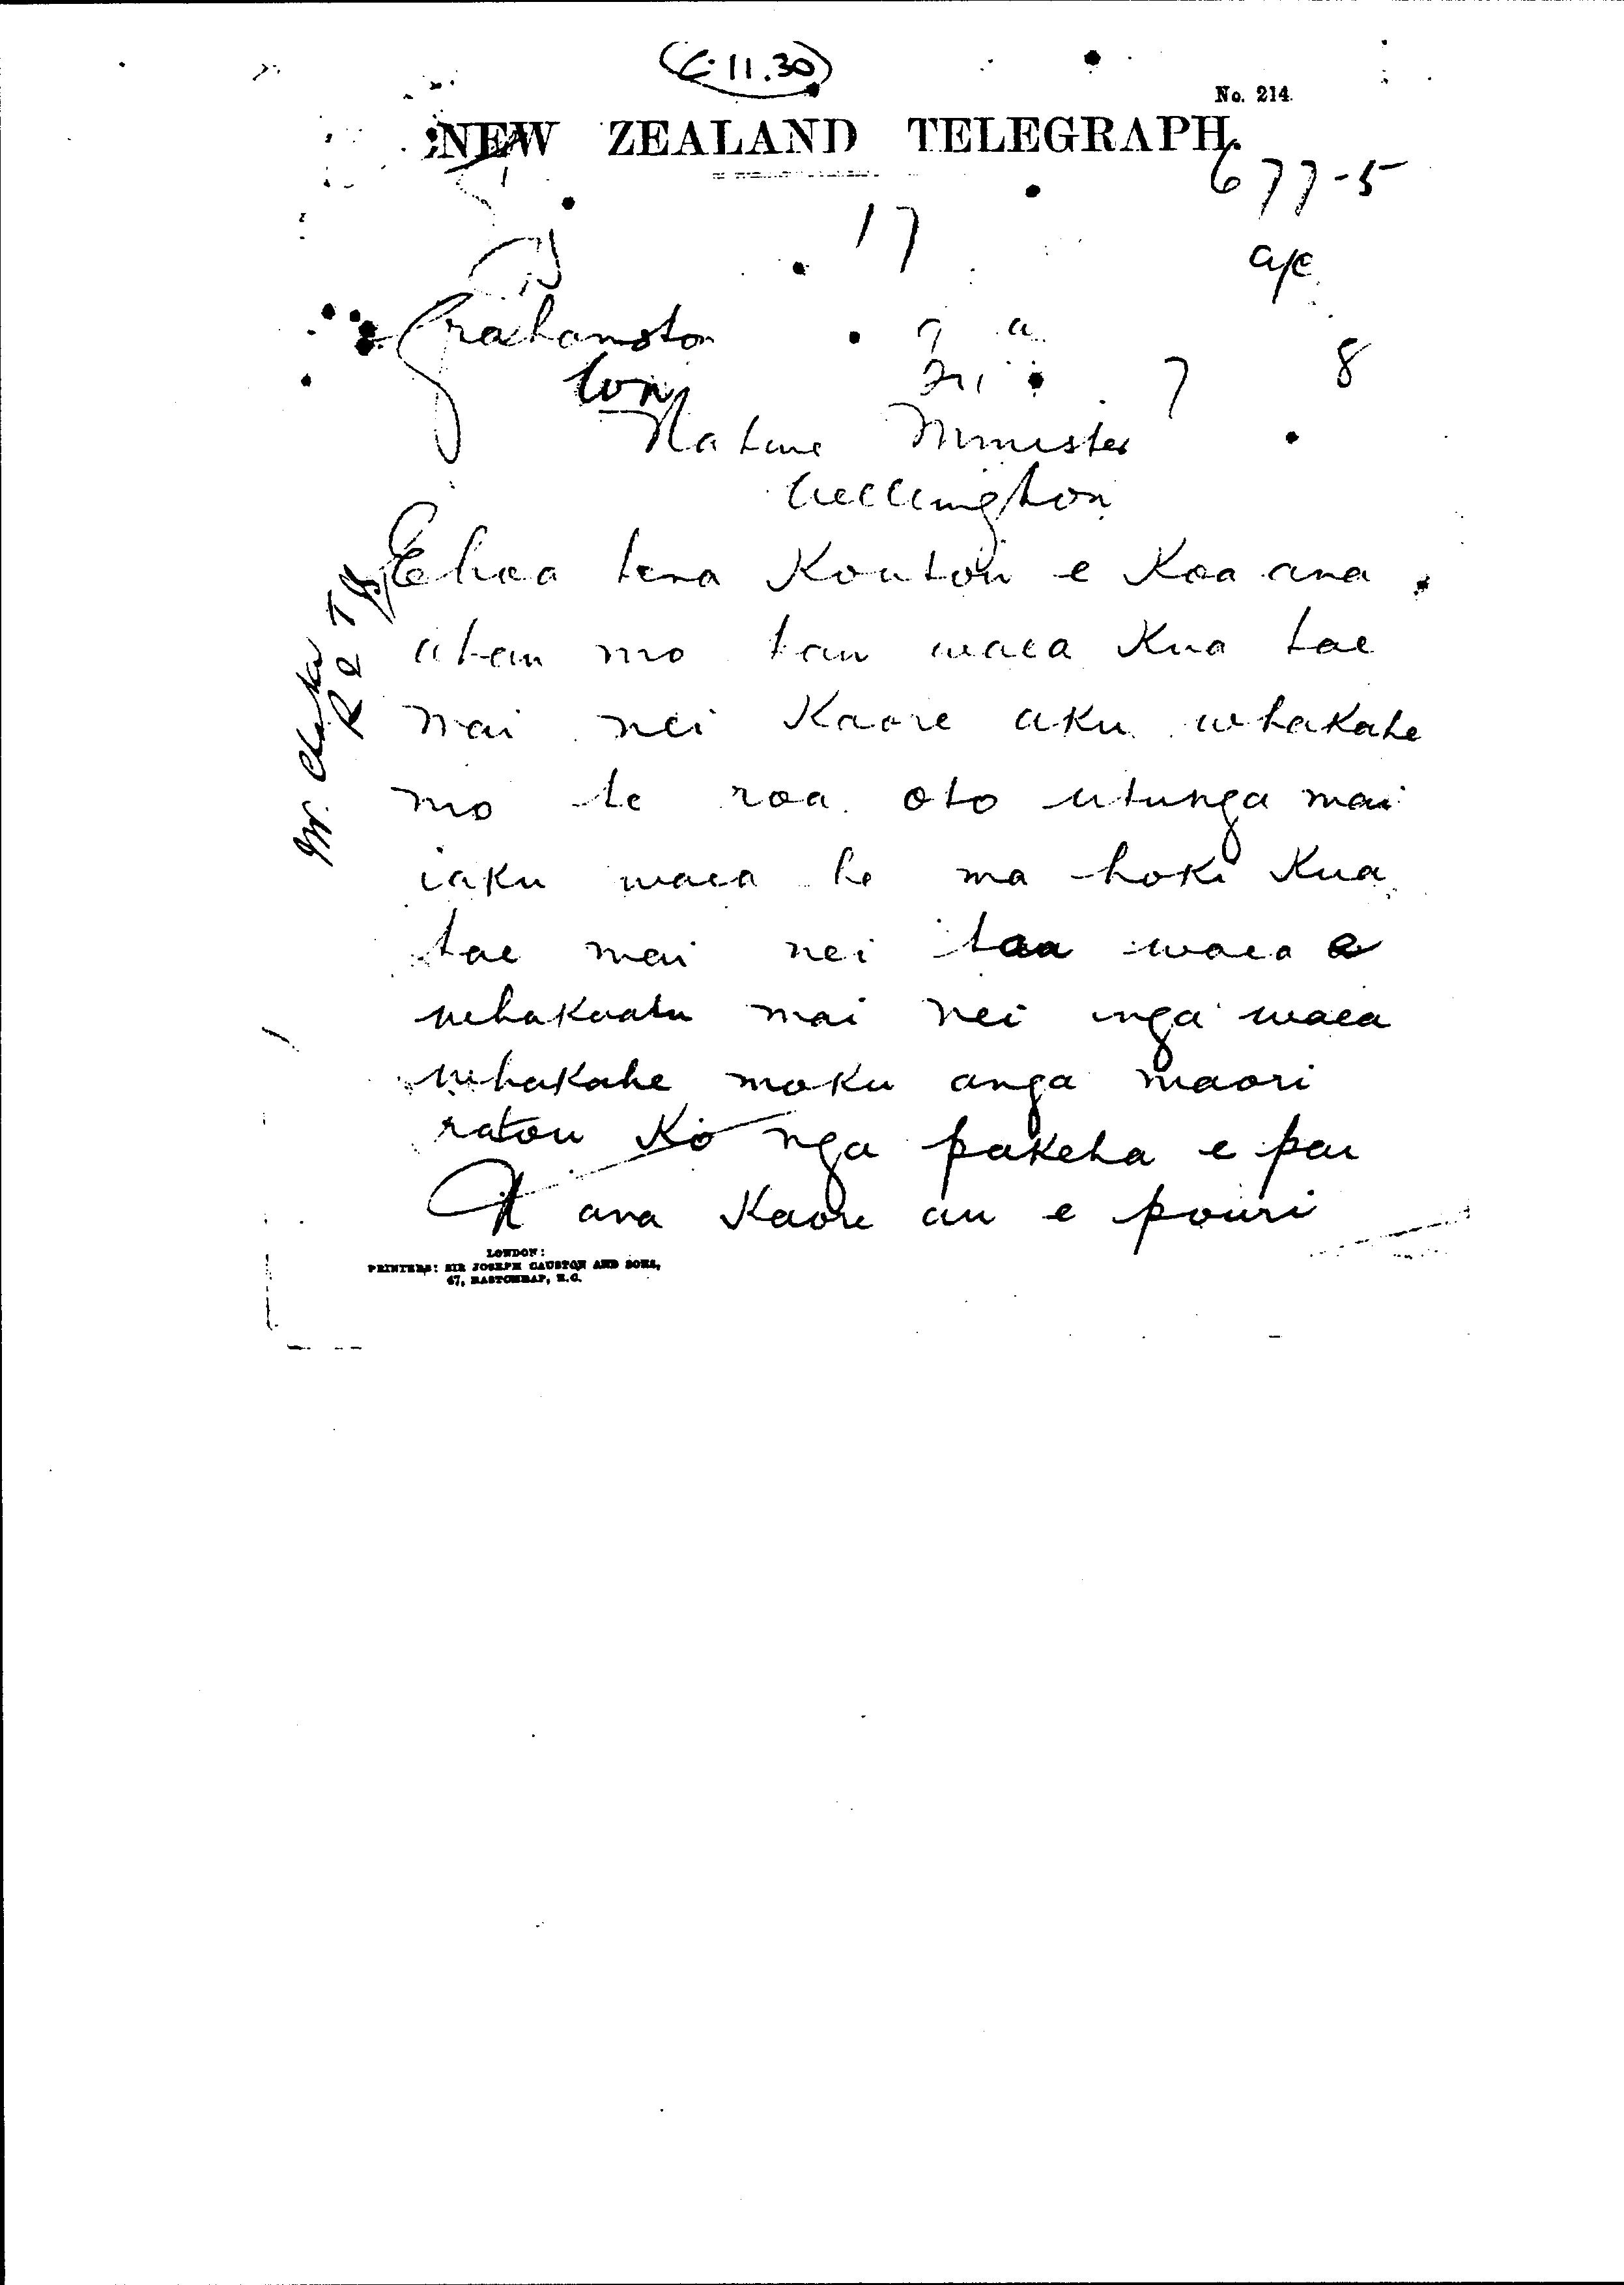 11.30
No. 214.
NEW ZEALAND TELEGRAPH.
677-5
17
a/c
Grahamston
7 8
Native Minister
Wellington
Ehoa tena Koutou e Koa ana
atau mo tau waea Kua tae
mai nei Kaore aku whakahe
mo te roa oto utunga mai
iaku waea he ma hoki Kua
tae mai nei taa waea e
whakaatu mai nei nga waea
whakahe moku anga maori
ratou Ko nga pakeha e pai
ana Kaore au e pouri
Mr. Clarke
LONDON:
PRINTERS: SIR JOSEPH CAUSTON AND SONS,
47, EASTCHEAP, E.C.